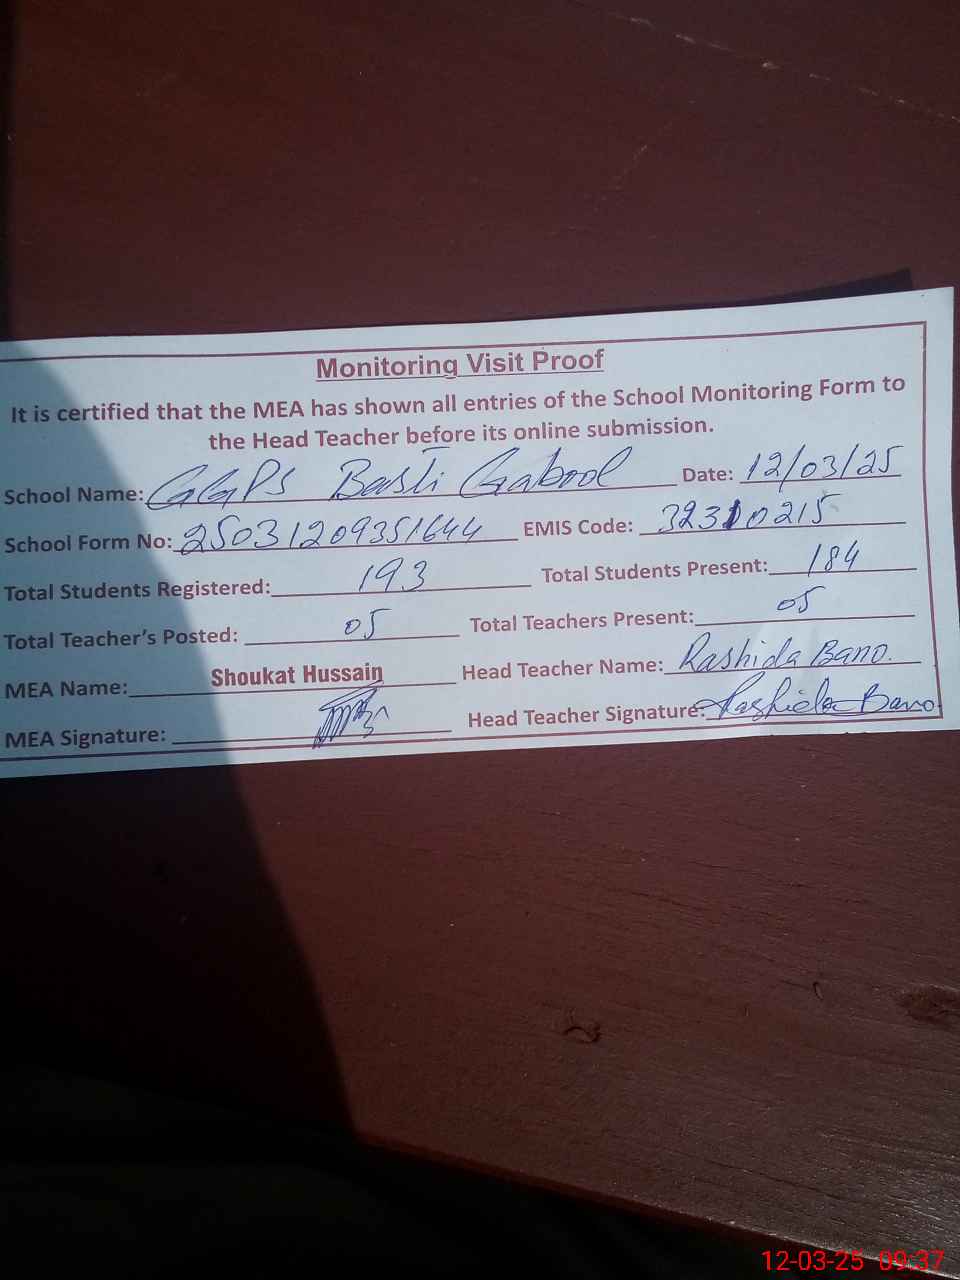 Monitoring Visit Proof
It is certified that the MEA has shown all entries of the School Monitoring Form to
the Head Teacher before its online submission.
School Name: GGPS Basti Gabool Date: 12/03/25
School Form No: 25031209351644 EMIS Code: 32310215
Total Students Registered: 193 Total Students Present: 184
Total Teacher's Posted: 05 Total Teachers Present: 05
MEA Name: Shoukat Hussain Head Teacher Name: Rashida Bano.
MEA Signature: Head Teacher Signature: Rashida Bano
12-03-25 09:37